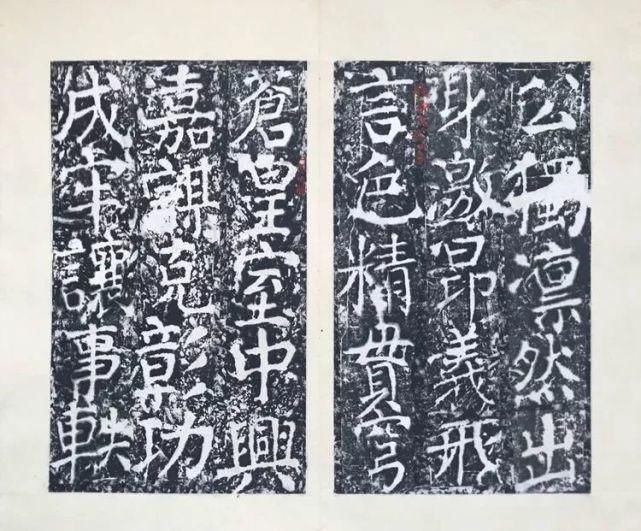 公獨凛然出
身激昂義飛
言色精貫穹
蒼皇室中興
嘉謀克彰功
成牢讓事軼